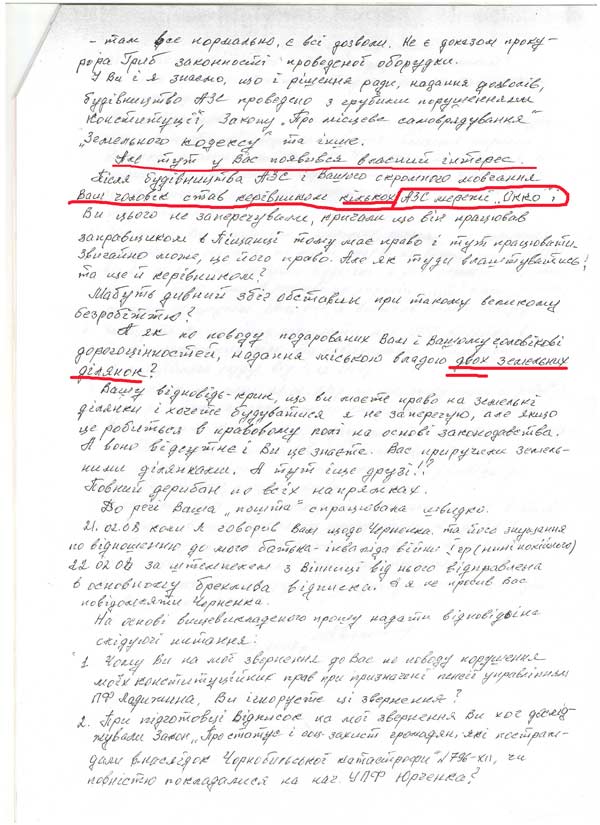 - там все нормально, є всі дозволи. Не є доказом проку-
рора Гриб законності проведеної оборудки.
У Ви і я знаємо, що і рішення ради, надання дозволів,
будівництво АЗС проведено з грубими порушеннями
Конституції, Закону „Про місцеве самоврядування"
„Земельного кодексу" та інше.
Але тут у Вас появився власний інтерес.
Після будівництва АЗС і Вашого скромного мовчання
Ваш чоловік став керівником кількох АЗС мережі „Окко" і
Ви цього не заперечували, кричали що він працював
заправщиком в Піщанці тому має право і тут працювати.
Звичайно може, це його право. Але як туди влаштуватись!
та ще й керівником?
Мабуть дивний збіг обставин при такому великому
безробіттю?
А як по поводу подарованих Вам і Вашому чоловікові
дорогоцінностей, надання міською владою двох земельних
ділянок?
Вашу відповідь-крик, що ви маєте право на земельні
ділянки і хочете будуватися я не заперечую, але якщо
це робиться в правовому полі на основі законодавства.
А воно відсутнє і Ви це знаєте. Вас приручили земель-
ними ділянками. А тут іще друзі!?
Повний дерибан по всіх напряжках.
До речі Ваша „пошта" спрацювала швидко.
21.02.08 коли я говорив Вам щодо Черненка та його знущання
по відношенню до мого батька-інваліда війни Ігр (нині покійного)
22.02.08 за штемпелем з Вінниці від нього відправлена
в основному брехлива відписка. А я не просив Вас
повідомляти Черненка.
На основі вищевикладеного прошу надати відповідь на
слідуючі питання:
1. Чому Ви на мої звернення до Вас по поводу порушення
моїх конституційних прав при призначені пенсії управлінням
ПФ Ладижина. Ви ігноруєте ці звернення?
2. При підготовці відписок на мої звернення Ви хоч дослід-
жували Закон „Про статус і соц. захист громадян, які постраж-
дали внаслідок Чорнобильської катастрофи" №796-XII, чи
повністю покладалися на нач. УПФ Юрченка?